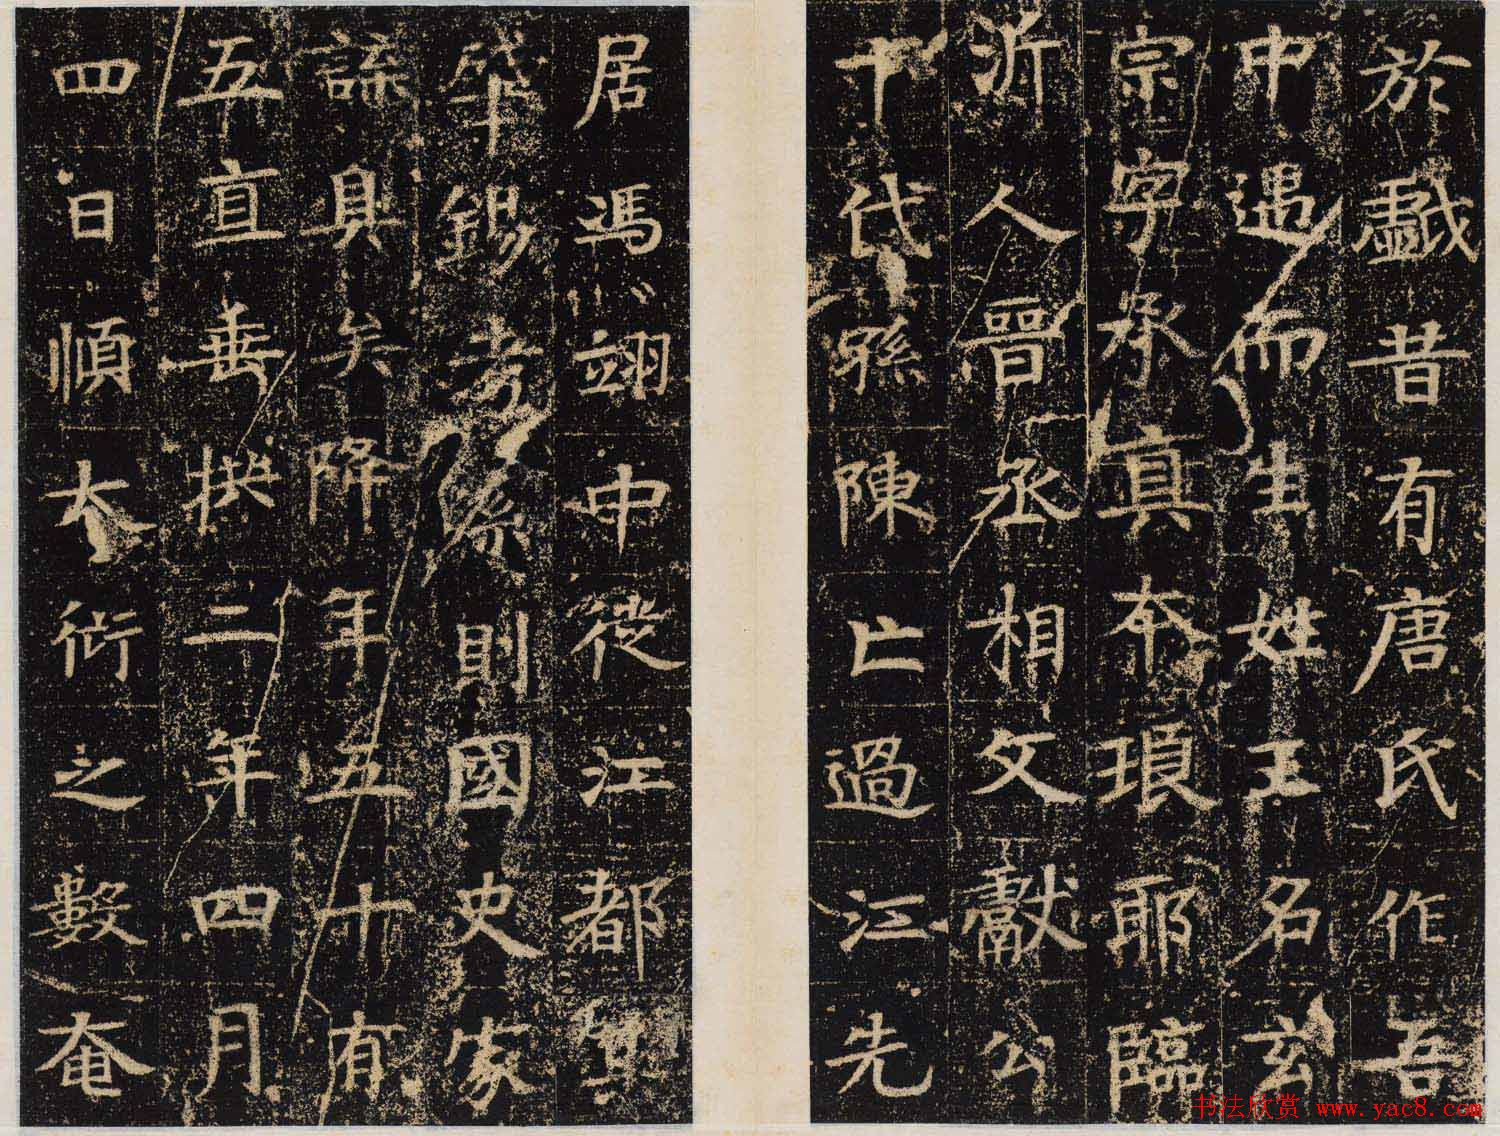 於戲昔有唐氏作吾
中遇而生姓王名玄
宗字承真本琅耶臨
沂人晉丞相文獻公
十代孫陳亡過江先
居馮翊中從江都其
錫考系則國史家
諜具矣降年五十有
五直垂拱二年四月
四日順大衍之數奄
书法欣赏 www.yac8.com